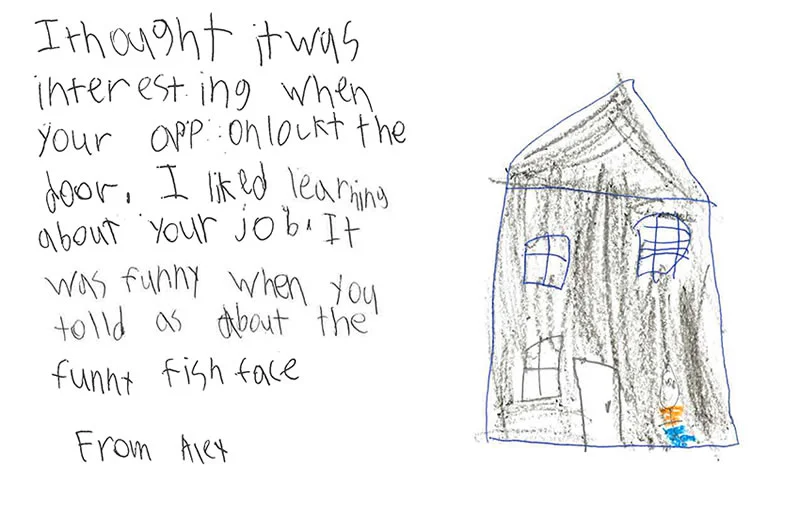 I thought it was
interesting when
your app onlockt the
door. I liked learning
about your job. It
was funny when you
tolld as about the
funny fish face
From Alex